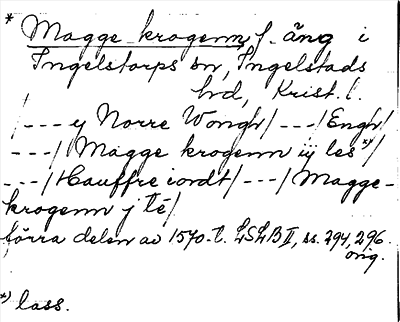 * Magge krogenn, f. äng i
Ingelstorps sn, Ingelstads
hd, Krist. l.
/--- y Norre Wongh/ ---/ Engh/
---/ Magge krogenn iij les*)/
---/ Hauffre iordt/ ---/ Magge-
krogenn j te/
förra delen av 1570-t. LSLB II, ss. 294, 296.
orig.
*) lass.